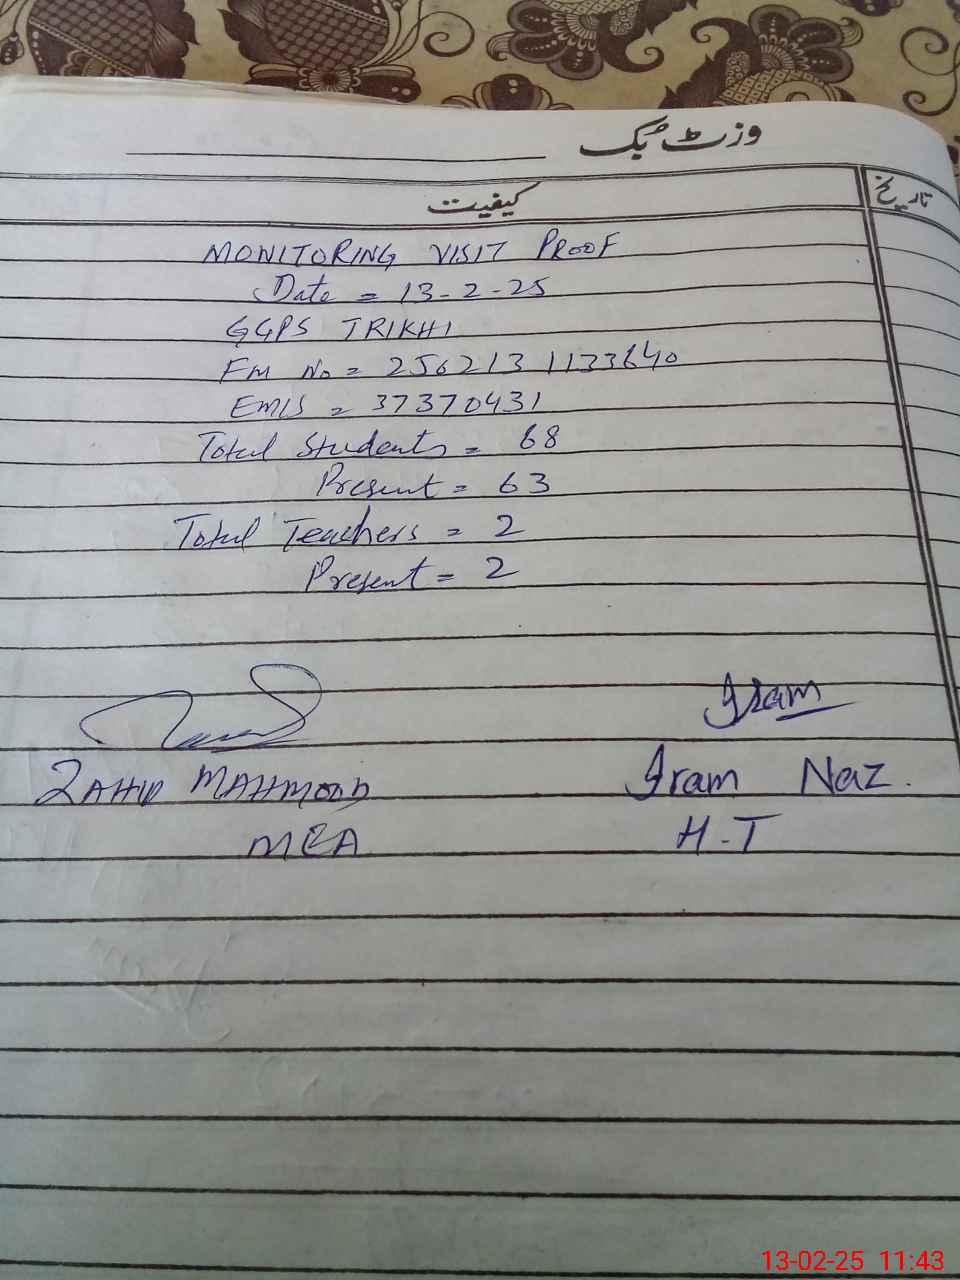 وزٹ بک
کیفیت
تاریخ
MONITORING VISIT PROOF
Date = 13-2-25
GGPS TRIKHI
Fm No = 2562131133640
EMIS = 37370431
Total Students = 68
Present = 63
Total Teachers = 2
Present = 2
Iram
ZAHID MAHMOOD
Iram Naz.
MEA
H-T
13-02-25 11:43